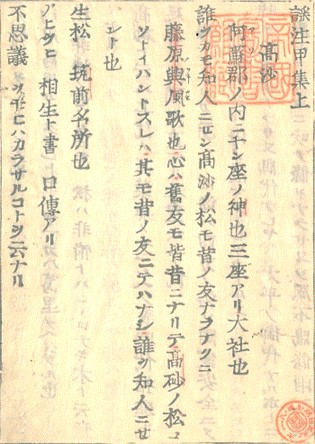 謡注甲集上
高沙
何蕭郡ノ内ニ三座ノ神也三座アリ大社也
誰ヲカモ知人ニセン高沙ノ松モ昔ノ友ナラナクニ
藤原興風歌也心ハ舊友モ皆昔ニナリテ高砂ノ松ヲ
ソトイハントスレハ其モ昔ノ友ニテハナシ誰ヲ知人ニセ
ント也
生松 筑前名所也
アヒヲヒ 相生ト書ト口傳アリ
不思議 ヲモヒハカラサルコトヲ云ナリ